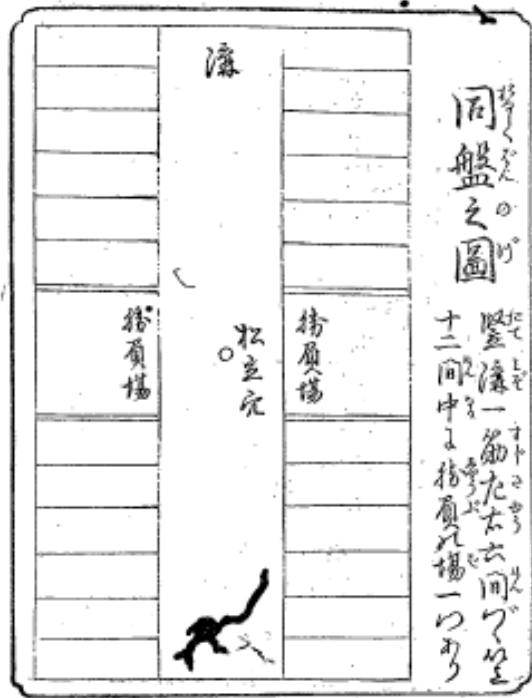 同盤之圖
竪溝一筋左右六間づゝ以上
十二間中に指負れ場一つあり
溝
勝負場
松立穴
勝負場